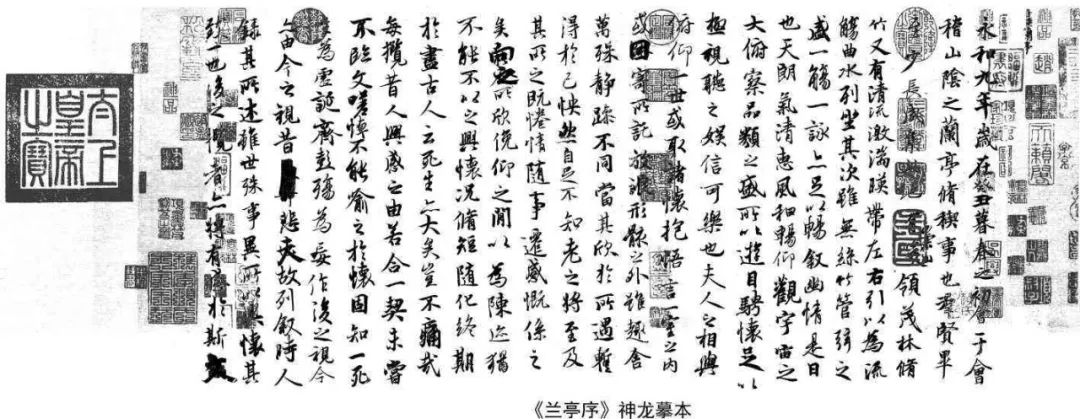 永和九年歲在癸丑暮春之初會于會
稽山陰之蘭亭脩稧事也羣賢畢
至少長咸集此地有崇山領茂林脩
竹又有清流激湍暎帶左右引以為流
觴曲水列坐其次雖無絲竹管弦之
盛一觴一詠亦足以暢敘幽情是日
也天朗氣清惠風和暢仰觀宇宙之
大俯察品類之盛所以遊目騁懷足以
極視聽之娛信可樂也夫人之相與
俯仰一世或取諸懷抱悟言一室之內
或因寄所託放浪形骸之外雖趣舍
萬殊靜躁不同當其欣於所遇暫
得於己怏然自足不知老之將至及
其所之既惓情隨事遷感慨係之
矣向之所欣俛仰之閒以為陳迹猶
不能不以之興懷況脩短隨化終期
於盡古人云死生亦大矣豈不痛哉
每攬昔人興感之由若合一契未嘗
不臨文嗟悼不能喻之於懷固知一死
生為虛誕齊彭殤為妄作後之視今
亦由今之視昔悲夫故列敘時人
錄其所述雖世殊事異所以興懷其
致一也後之攬者亦將有感於斯文
太上皇帝之寶
《兰亭序》神龙摹本